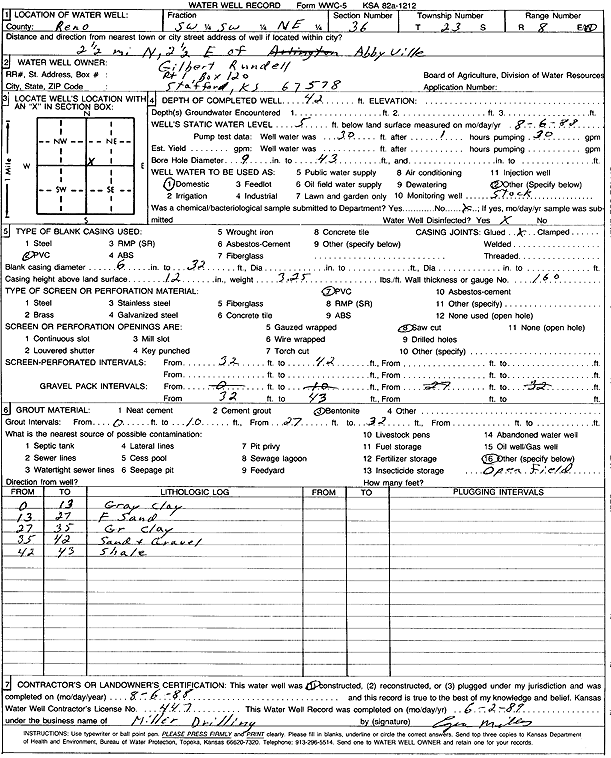 WATER WELL RECORD Form WWC-5 KSA 82a-1212
1 LOCATION OF WATER WELL: Fraction Section Number Township Number Range Number
County: Reno SW ¼ SW ¼ NE ¼ 36 T 23 S R 8 E/W
Distance and direction from nearest town or city street address of well if located within city?
2½ mi N, 2½ E of Arlington Abbyville
2 WATER WELL OWNER: Gilbert Rundell
RR#, St. Address, Box # : Rt 1 Box 120 Board of Agriculture, Division of Water Resources
City, State, ZIP Code : Stafford, KS 67578 Application Number:
3 LOCATE WELL'S LOCATION WITH AN "X" IN SECTION BOX:
N
NW NE
W X E
SW SE
S
1 Mile
4 DEPTH OF COMPLETED WELL 42 ft. ELEVATION:
Depth(s) Groundwater Encountered 1. ft. 2. ft. 3. ft.
WELL'S STATIC WATER LEVEL 5 ft. below land surface measured on mo/day/yr 8-6-88
Pump test data: Well water was 30 ft. after 1 hours pumping 30 gpm
Est. Yield gpm: Well water was ft. after hours pumping gpm
Bore Hole Diameter 9 in. to 43 ft., and in. to ft.
WELL WATER TO BE USED AS: 5 Public water supply 8 Air conditioning 11 Injection well
1 Domestic 3 Feedlot 6 Oil field water supply 9 Dewatering 12 Other (Specify below)
2 Irrigation 4 Industrial 7 Lawn and garden only 10 Monitoring well Stock
Was a chemical/bacteriological sample submitted to Department? Yes No X; If yes, mo/day/yr sample was submitted Water Well Disinfected? Yes X No
5 TYPE OF BLANK CASING USED: 5 Wrought iron 8 Concrete tile CASING JOINTS: Glued X Clamped
1 Steel 3 RMP (SR) 6 Asbestos-Cement 9 Other (specify below) Welded
2 PVC 4 ABS 7 Fiberglass Threaded
Blank casing diameter 6 in. to 32 ft., Dia in. to ft., Dia in. to ft.
Casing height above land surface 12 in., weight 3.25 lbs./ft. Wall thickness or gauge No. 160
TYPE OF SCREEN OR PERFORATION MATERIAL: 7 PVC 10 Asbestos-cement
1 Steel 3 Stainless steel 5 Fiberglass 8 RMP (SR) 11 Other (specify)
2 Brass 4 Galvanized steel 6 Concrete tile 9 ABS 12 None used (open hole)
SCREEN OR PERFORATION OPENINGS ARE: 5 Gauzed wrapped 8 Saw cut 11 None (open hole)
1 Continuous slot 3 Mill slot 6 Wire wrapped 9 Drilled holes
2 Louvered shutter 4 Key punched 7 Torch cut 10 Other (specify)
SCREEN-PERFORATED INTERVALS: From 32 ft. to 42 ft., From ft. to ft.
From ft. to ft., From ft. to ft.
GRAVEL PACK INTERVALS: From 0 ft. to 10 ft., From 27 ft. to 32 ft.
From 32 ft. to 43 ft., From ft. to ft.
6 GROUT MATERIAL: 1 Neat cement 2 Cement grout 3 Bentonite 4 Other
Grout Intervals: From 0 ft. to 10 ft., From 27 ft. to 32 ft., From ft. to ft.
What is the nearest source of possible contamination: 10 Livestock pens 14 Abandoned water well
1 Septic tank 4 Lateral lines 7 Pit privy 11 Fuel storage 15 Oil well/Gas well
2 Sewer lines 5 Cess pool 8 Sewage lagoon 12 Fertilizer storage 16 Other (specify below)
3 Watertight sewer lines 6 Seepage pit 9 Feedyard 13 Insecticide storage Open Field
Direction from well? How many feet?
FROM TO LITHOLOGIC LOG FROM TO PLUGGING INTERVALS
0 13 Gray Clay
13 27 F Sand
27 35 Gr Clay
35 42 Sand & Gravel
42 43 Shale
7 CONTRACTOR'S OR LANDOWNER'S CERTIFICATION: This water well was (1) constructed, (2) reconstructed, or (3) plugged under my jurisdiction and was
completed on (mo/day/year) 8-6-88 and this record is true to the best of my knowledge and belief. Kansas
Water Well Contractor's License No. 447 This Water Well Record was completed on (mo/day/yr) 6-2-89
under the business name of Miller Drilling by (signature)
INSTRUCTIONS: Use typewriter or ball point pen. PLEASE PRESS FIRMLY and PRINT clearly. Please fill in blanks, underline or circle the correct answers. Send top three copies to Kansas Department
of Health and Environment, Bureau of Water Protection, Topeka, Kansas 66620-7320. Telephone: 913-296-5514. Send one to WATER WELL OWNER and retain one for your records.